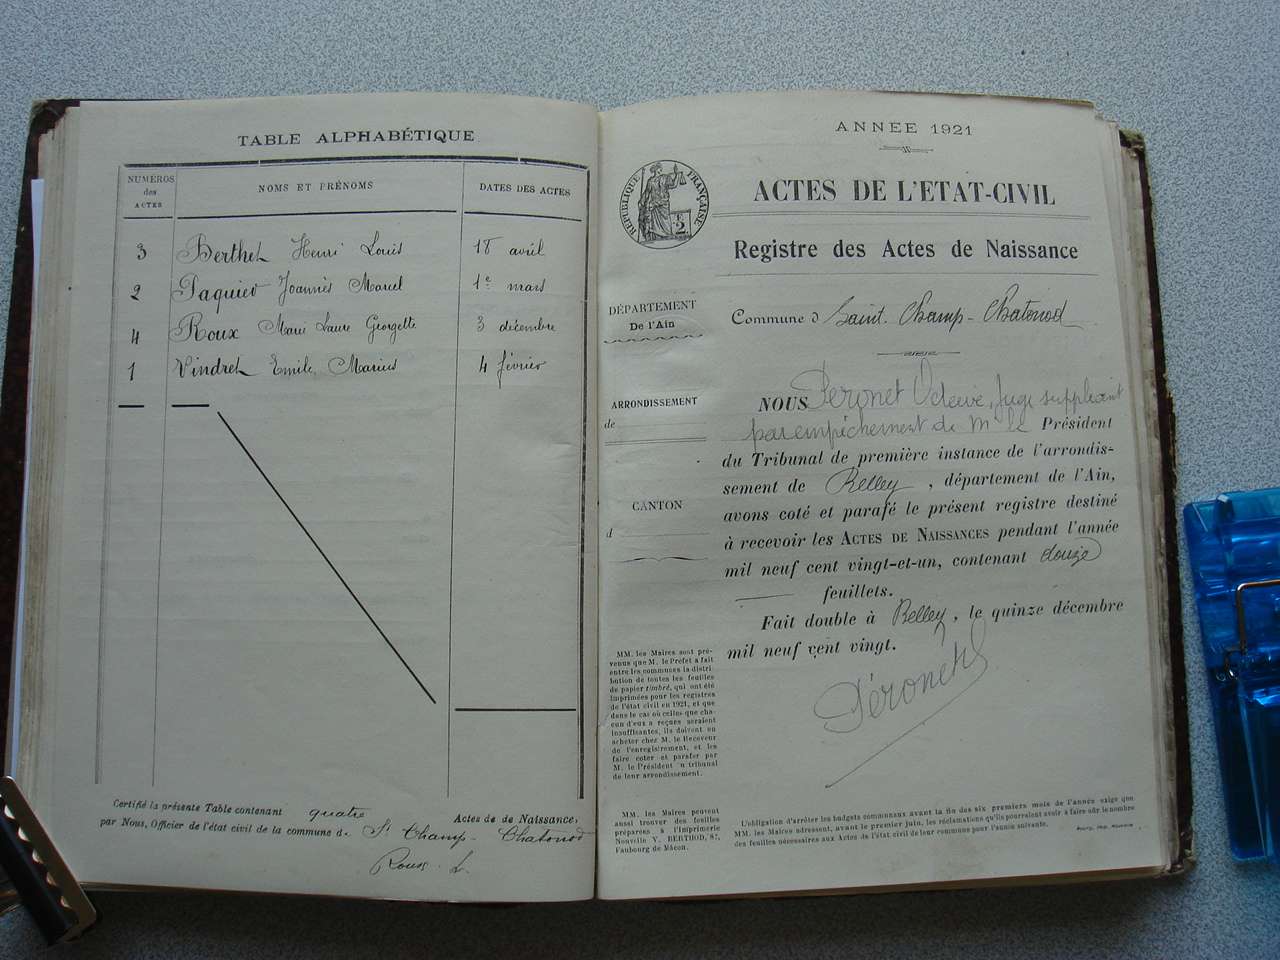 TABLE ALPHABÉTIQUE
NUMÉROS des ACTES NOMS ET PRÉNOMS DATES DES ACTES
3 Berthet Henri Louis 18 avril
2 Paquier Joannès Marcel 1er mars
4 Roux Marie Laure Georgette 3 décembre
1 Vindret Emile Marius 4 février
Certifié la présente Table contenant quatre Actes de de Naissance,
par Nous, Officier de l'état civil de la commune de St Champ-Chatonod
Roux L.
ANNEE 1921
RÉPUBLIQUE FRANÇAISE
E 2
ACTES DE L'ETAT-CIVIL
Registre des Actes de Naissance
DÉPARTEMENT
De l'Ain
Commune d Saint-Champ-Chatonod
ARRONDISSEMENT
de
CANTON
d
NOUS Peronet Octave, Juge suppléant
par empêchement de Mr le Président
du Tribunal de première instance de l'arrondis-
sement de Belley, département de l'Ain,
avons coté et parafé le présent registre destiné
à recevoir les ACTES DE NAISSANCES pendant l'année
mil neuf cent vingt-et-un, contenant douze
feuillets.
Fait double à Belley, le quinze décembre
mil neuf cent vingt.
Péronet
MM. les Maires sont pré-
venus que M. le Préfet a fait
entre les communes la distri-
bution de toutes les feuilles
de papier timbré, qui ont été
imprimées pour les registres
de l'état civil en 1921, et que
dans le cas où celles que cha-
cun d'eux a reçues seraient
insuffisantes, ils doivent en
acheter chez M. le Receveur
de l'enregistrement, et les
faire coter et parafer par
M. le Président u tribunal
de leur arrondissement.
MM. les Maires peuvent
aussi trouver des feuilles
préparées à l'Imprimerie
Nouvelle V. BERTHOD, 87,
Faubourg de Mâcon.
L'obligation d'arrêter les budgets communaux avant la fin des six premiers mois de l'année exige que
MM. les Maires adressent, avant le premier juin, les réclamations qu'ils pourraient avoir à faire sur le nombre
des feuilles nécessaires aux Actes de l'état civil de leur commune pour l'année suivante.